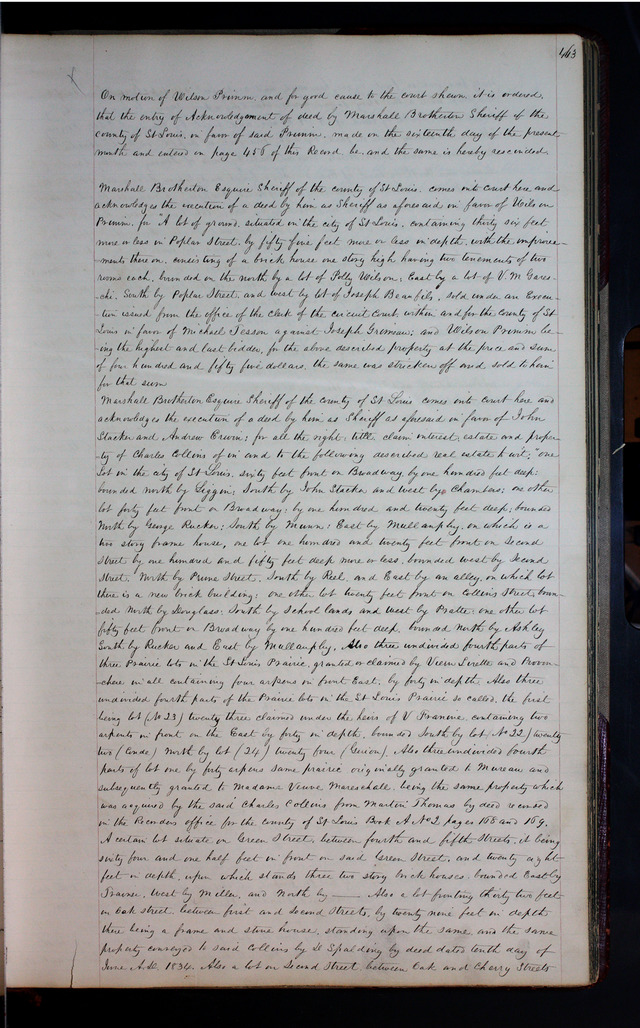 463
On motion of Wilson Primm, and for good cause to the court shewn it is ordered,
that the entry of Acknowledgement of deed by Marshall Brotherton Sheriff of the
county of St Louis, in favor of said Primm, made on the sixteenth day of the present
month and entered on page 456 of this Record be, and the same is hereby rescinded.
Marshall Brotherton Esquire Sheriff of the county of St Louis, comes into court here and
acknowledges the execution of a deed by him as Sheriff as aforesaid in favor of Wilson
Primm, for "A lot of ground, situated in the city of St Louis, containing thirty six feet
more or less in Poplar Street, by fifty five feet more or less in depth, with the improve-
ments thereon, consisting of a brick house one story high having two tenements of two
rooms each, bounded on the north by a lot of Polly Wilson; East by a lot of V. M Gares-
chi, South by Poplar Street, and west by lot of Joseph Beaufils, sold under an Execu-
tion issued from the office of the clerk of the circuit Court, within and for the County of St
Louis in favor of Michael Tesson against Joseph ; and Wilson Primm be-
ing the highest and last bidder, for the above described property at the price and sum
of four hundred and fifty five dollars, the same was stricken off and sold to him
for that sum
Marshall Brotherton Esquire Sheriff of the county of St Louis comes into court here and
acknowledges the execution of a deed by him as Sheriff as aforesaid in favor of John
Stacker and Andrew Erwin; for all the right, title claim interest, estate and proper-
ty of Charles Collins of in and to the following described real estate to wit; "one
Lot in the city of St Louis, sixty feet front on Broadway, by one hundred feet deep;
bounded north by Liggin; South by John Stacker and west by Chambers; one other
lot forty feet front on Broadway; by one hundred and twenty feet deep; bounded
North by George Rucker; South by Munn; East by Mullanphy, on which is a
two story frame house, one lot one hundred and twenty feet front on Second
Street by one hundred and fifty feet deep more or less, bounded west by Second
Street, North by Prune Street, South by Reel, and East by an alley, on which lot
there is a new brick building; one other lot twenty feet front on Collins Street, boun-
ded North by Douglass, South by School lands and West by Pratte; one other lot
fifty feet front on Broadway by one hundred feet deep, bounded North by Ashley
South by Rucker and East by Mullanphy, Also three undivided fourth parts of
three Prairie lots in the St Louis Prairie, granted or claimed by and
in all containing four arpens in front East, by forty in depth Also three
undivided fourth parts of the Prairie lots in the St Louis Prairie so called, the first
being lot (No 23) twenty three claimed under the heirs of V containing two
arpents in front on the East by forty in depth, bounded South by lot (No 22) twenty
two (Conde) North by lot (24) twenty four (). Also three undivided fourth
parts of lot one by forty arpens same prairie originally granted to and
subsequently granted to Madame Veuve Mareschale, being the same property which
was acquired by the said Charles Collins from Martin Thomas by deed recorded
in the Recorders office for the county of St Louis Book A No 2 pages 168 and 169.
A certain lot situate on Green Street, between fourth and fifth Streets, it being
sixty four and one half feet in front on said Green Street, and twenty eight
feet in depth, upon which stands three two story brick houses, bounded East by
, West by Miller, and North by ——— Also a lot fronting thirty two feet
on Oak Street, between first and Second Streets, by twenty nine feet in depth
there being a frame and stone house, standing upon the same, and the same
property conveyed to said Collins by Spalding by deed dated tenth day of
June A.D. 1834. Also a lot on Second Street, between Oak and Cherry Streets